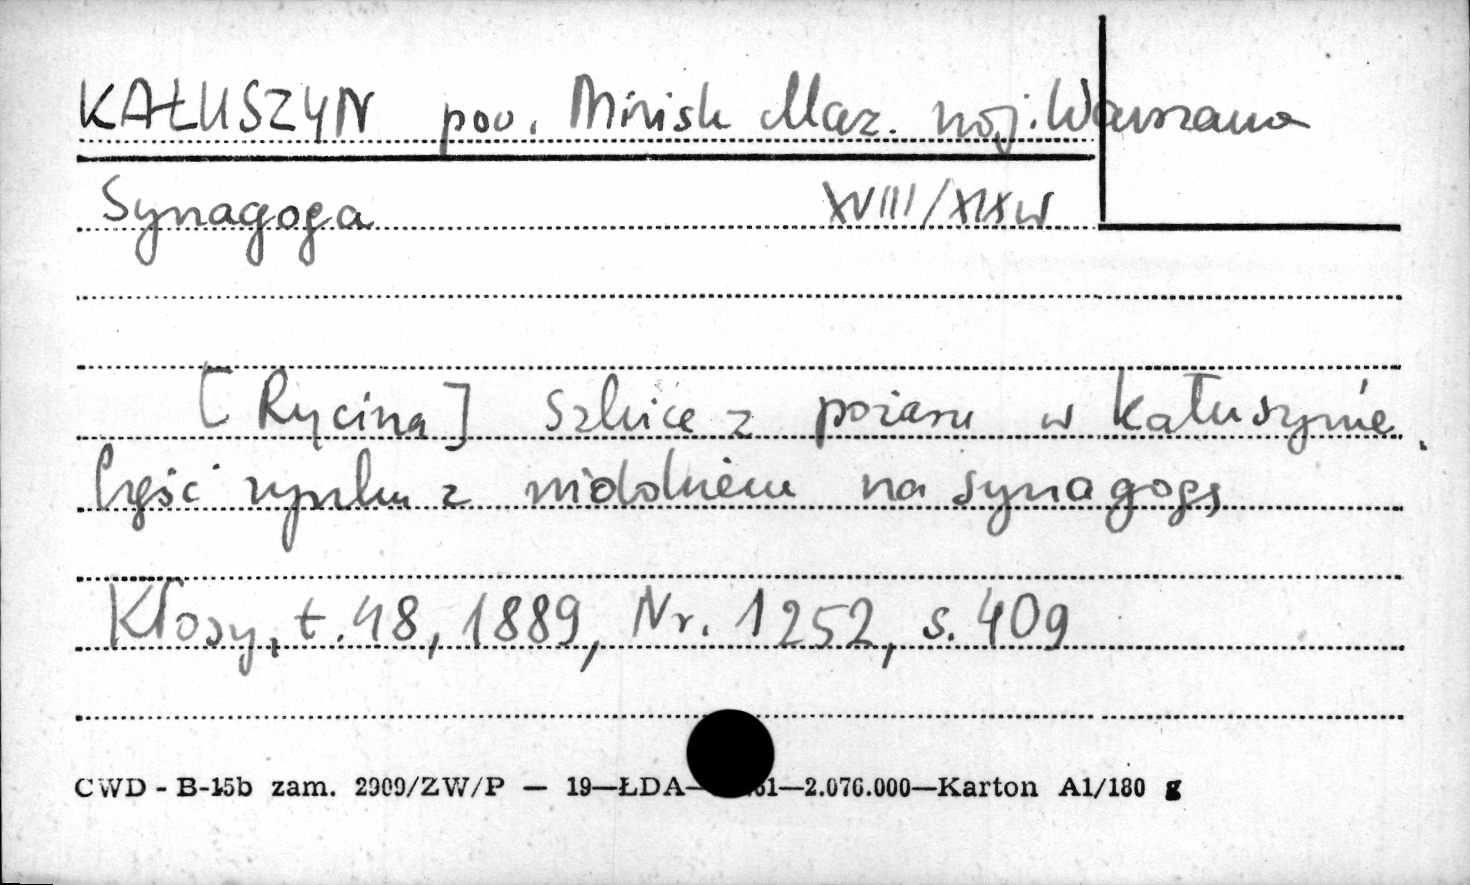 KAŁUSZYN pow. Mińsk Maz. woj. Warszawa
Synagoga XVIII/XIX w
[Rycina] Szkice z pożaru w Kałuszynie.
Część rynku z widokiem na synagogę
Kłosy, t. 48, 1889, Nr. 1252, s. 409
CWD - B-15b zam. 2909/ZW/P — 19—ŁDA— 61—2.076.000—Karton A1/180 g